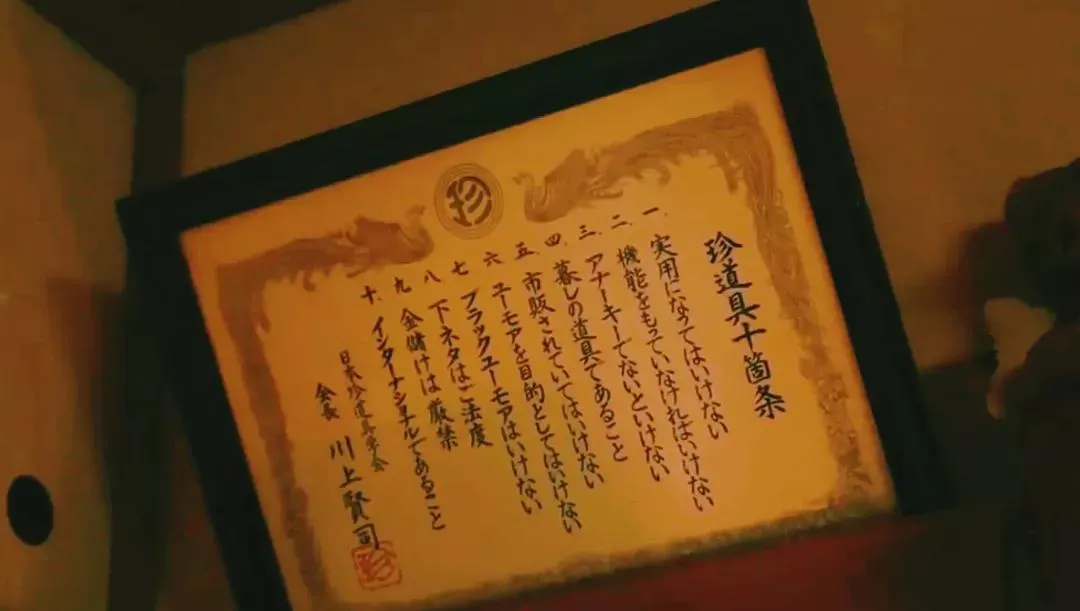 珍
珍道具十箇条
一、実用になってはいけない
二、機能をもっていなければいけない
三、アナーキーでないといけない
四、暮しの道具であること
五、市販されていてはいけない
六、ユーモアを目的としてはいけない
七、ブラックユーモアはいけない
八、下ネタはご法度
九、金儲けは厳禁
十、インターナショナルであること
日本珍道具学会
会長 川上賢司
珍